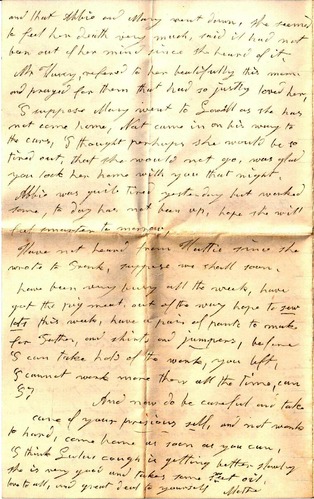 and that Abbie and Mary went down, she seemed
to feel her death very much, said it had not
been out of her mind since she heard of it.
Mr referred to her beautifully this morn
and prayed for them that had so justly loved her,
I suppose Mary went to Lowell as she has
not come home, Nat came in on his way to
the cars, I thought perhaps she would be so
tired out, that she would not go, was glad
you took her home with you that night.
Abbie was quite tired yesterday but worked
some, to day has not been up, hope she will
feel smarter to morrow
Have not heard from Hattie since she
wrote to Frank, suppose we shall soon.
have been very busy all the week, have
got the pig meat out of the way hope to sew
lots this week, have a pair of pants to make
for Father, and shirts and jumpers, before
I can take hold of the work, you left,
I cannot work more than all the time, can
I?
And now do be careful and take
care of your precious self, and not work
to hard, come home as soon as you can,
I think Lulus cough is getting better slowly
she is very good and takes some oil.
love to all, and great deal to yourself Mother